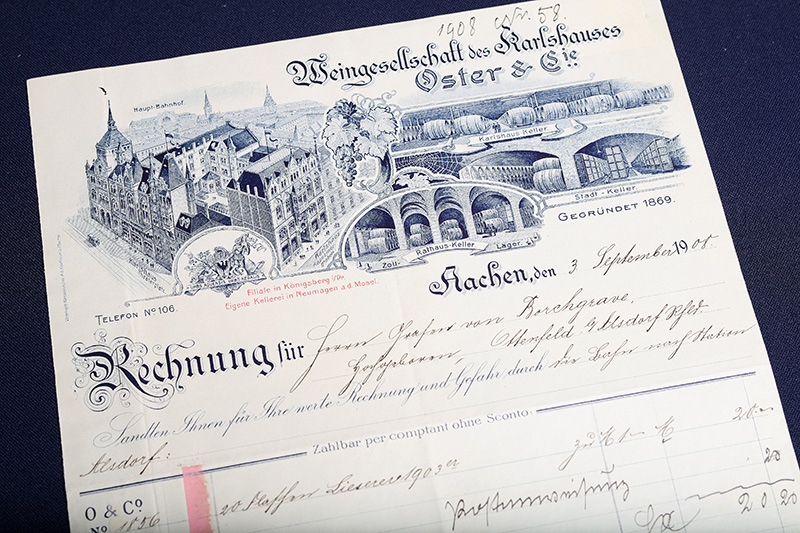 1908 Nr. 58.
Weingesellschaft des Karlshauses
Oster & Cie.
Haupt-Bahnhof.
Karlshaus-Keller
Stadt-Keller.
Gegründet 1869.
Zoll- Rathaus-Keller Lager.
Telefon No 106.
Filiale in Königsberg i/Pr.
Eigene Kellerei in Neumagen a.d. Mosel.
Aachen, den 3 September 1908.
Rechnung für Herrn Grafen von Borchgrave,
Hochgeboren, Ottenfeld b/Alsdorf
Sandten Ihnen für Ihre werte Rechnung und Gefahr durch die Bahn nach Station
Alsdorf:
Zahlbar per comptant ohne Sconto.
O & Co
No 1856
20 Flaschen Lieserer 1903er zu M 1 – M 20.–
.20
20 20